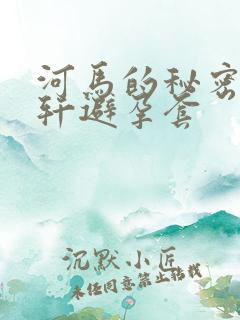 河马的秘密
轩避孕套
沉默小匠
未经同意禁止转载